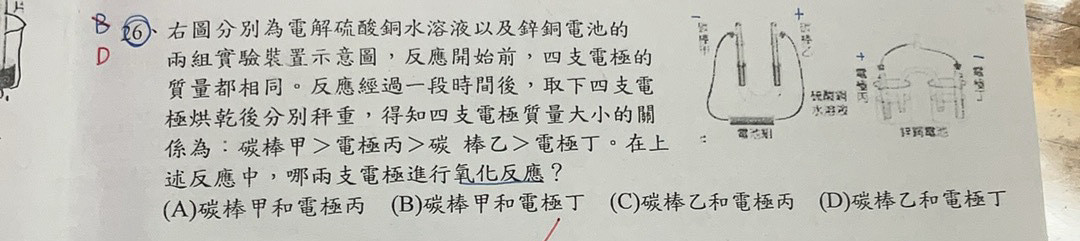 B
D
26、右圖分別為電解硫酸銅水溶液以及鋅銅電池的
兩組實驗裝置示意圖，反應開始前，四支電極的
質量都相同。反應經過一段時間後，取下四支電
極烘乾後分別秤重，得知四支電極質量大小的關
係為：碳棒甲＞電極丙＞碳 棒乙＞電極丁。在上
述反應中，哪兩支電極進行氧化反應？
(A)碳棒甲和電極丙 (B)碳棒甲和電極丁 (C)碳棒乙和電極丙 (D)碳棒乙和電極丁
－
碳棒甲
＋
碳棒乙
硫酸銅
水溶液
電池組
＋
電極丙
－
電極丁
鋅銅電池